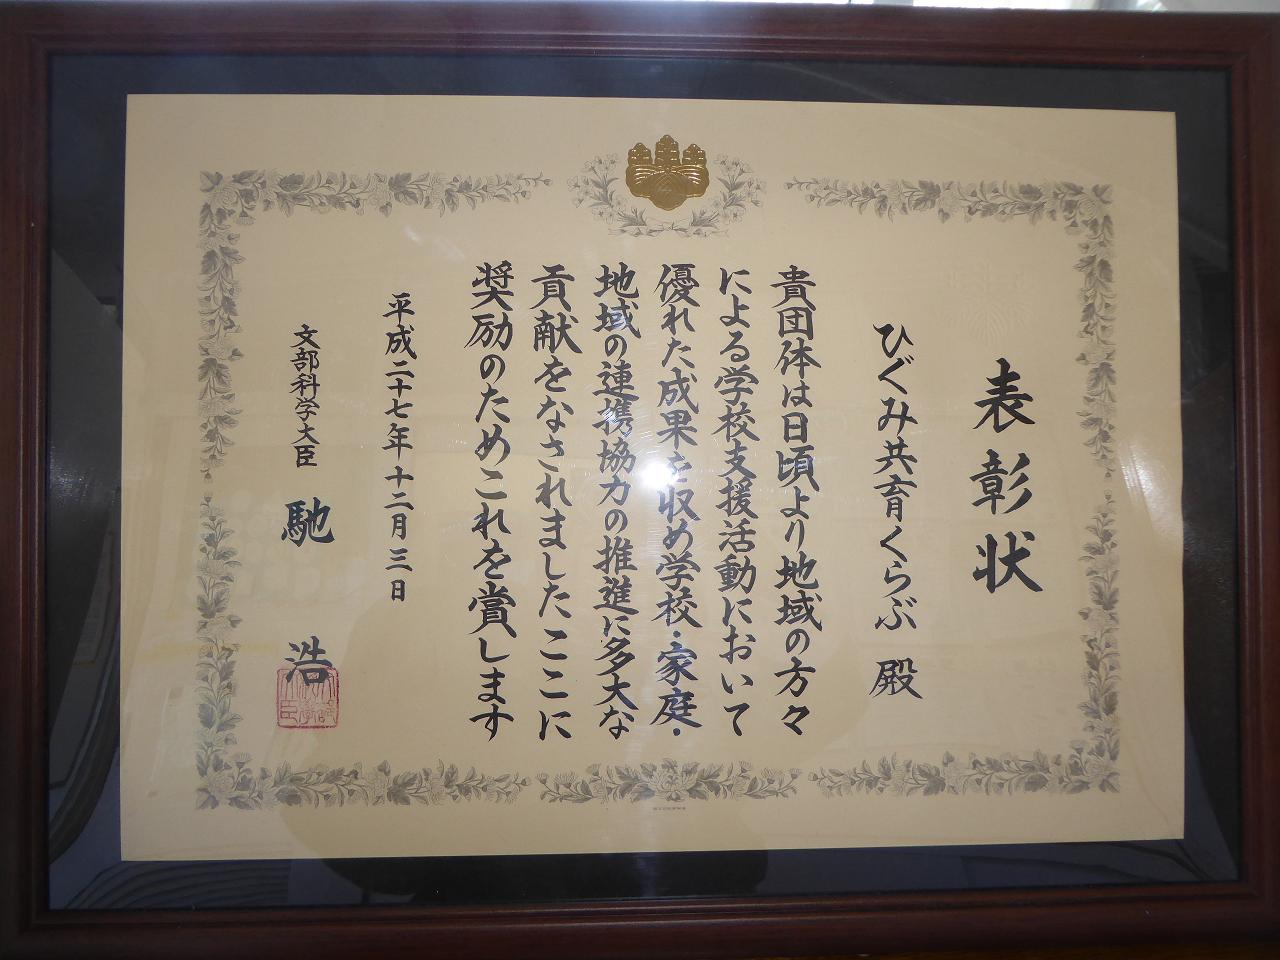 表彰状
ひぐみ共育くらぶ 殿
貴団体は日頃より地域の方々
による学校支援活動において
優れた成果を収め学校・家庭・
地域の連携協力の推進に多大な
貢献をなされましたここに
奨励のためこれを賞します
平成二十七年十二月三日
文部科学大臣 馳 浩